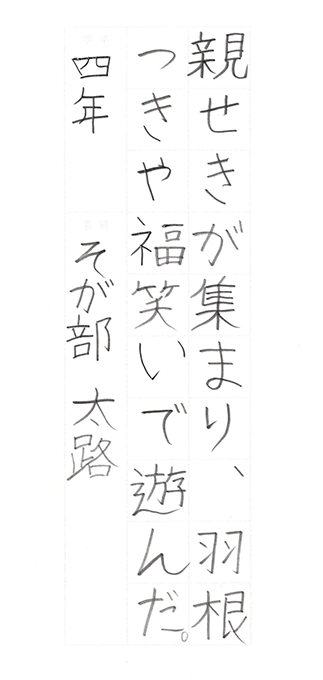 親せきが集まり、羽根
つきや福笑いで遊んだ。
四年 そが部 太路